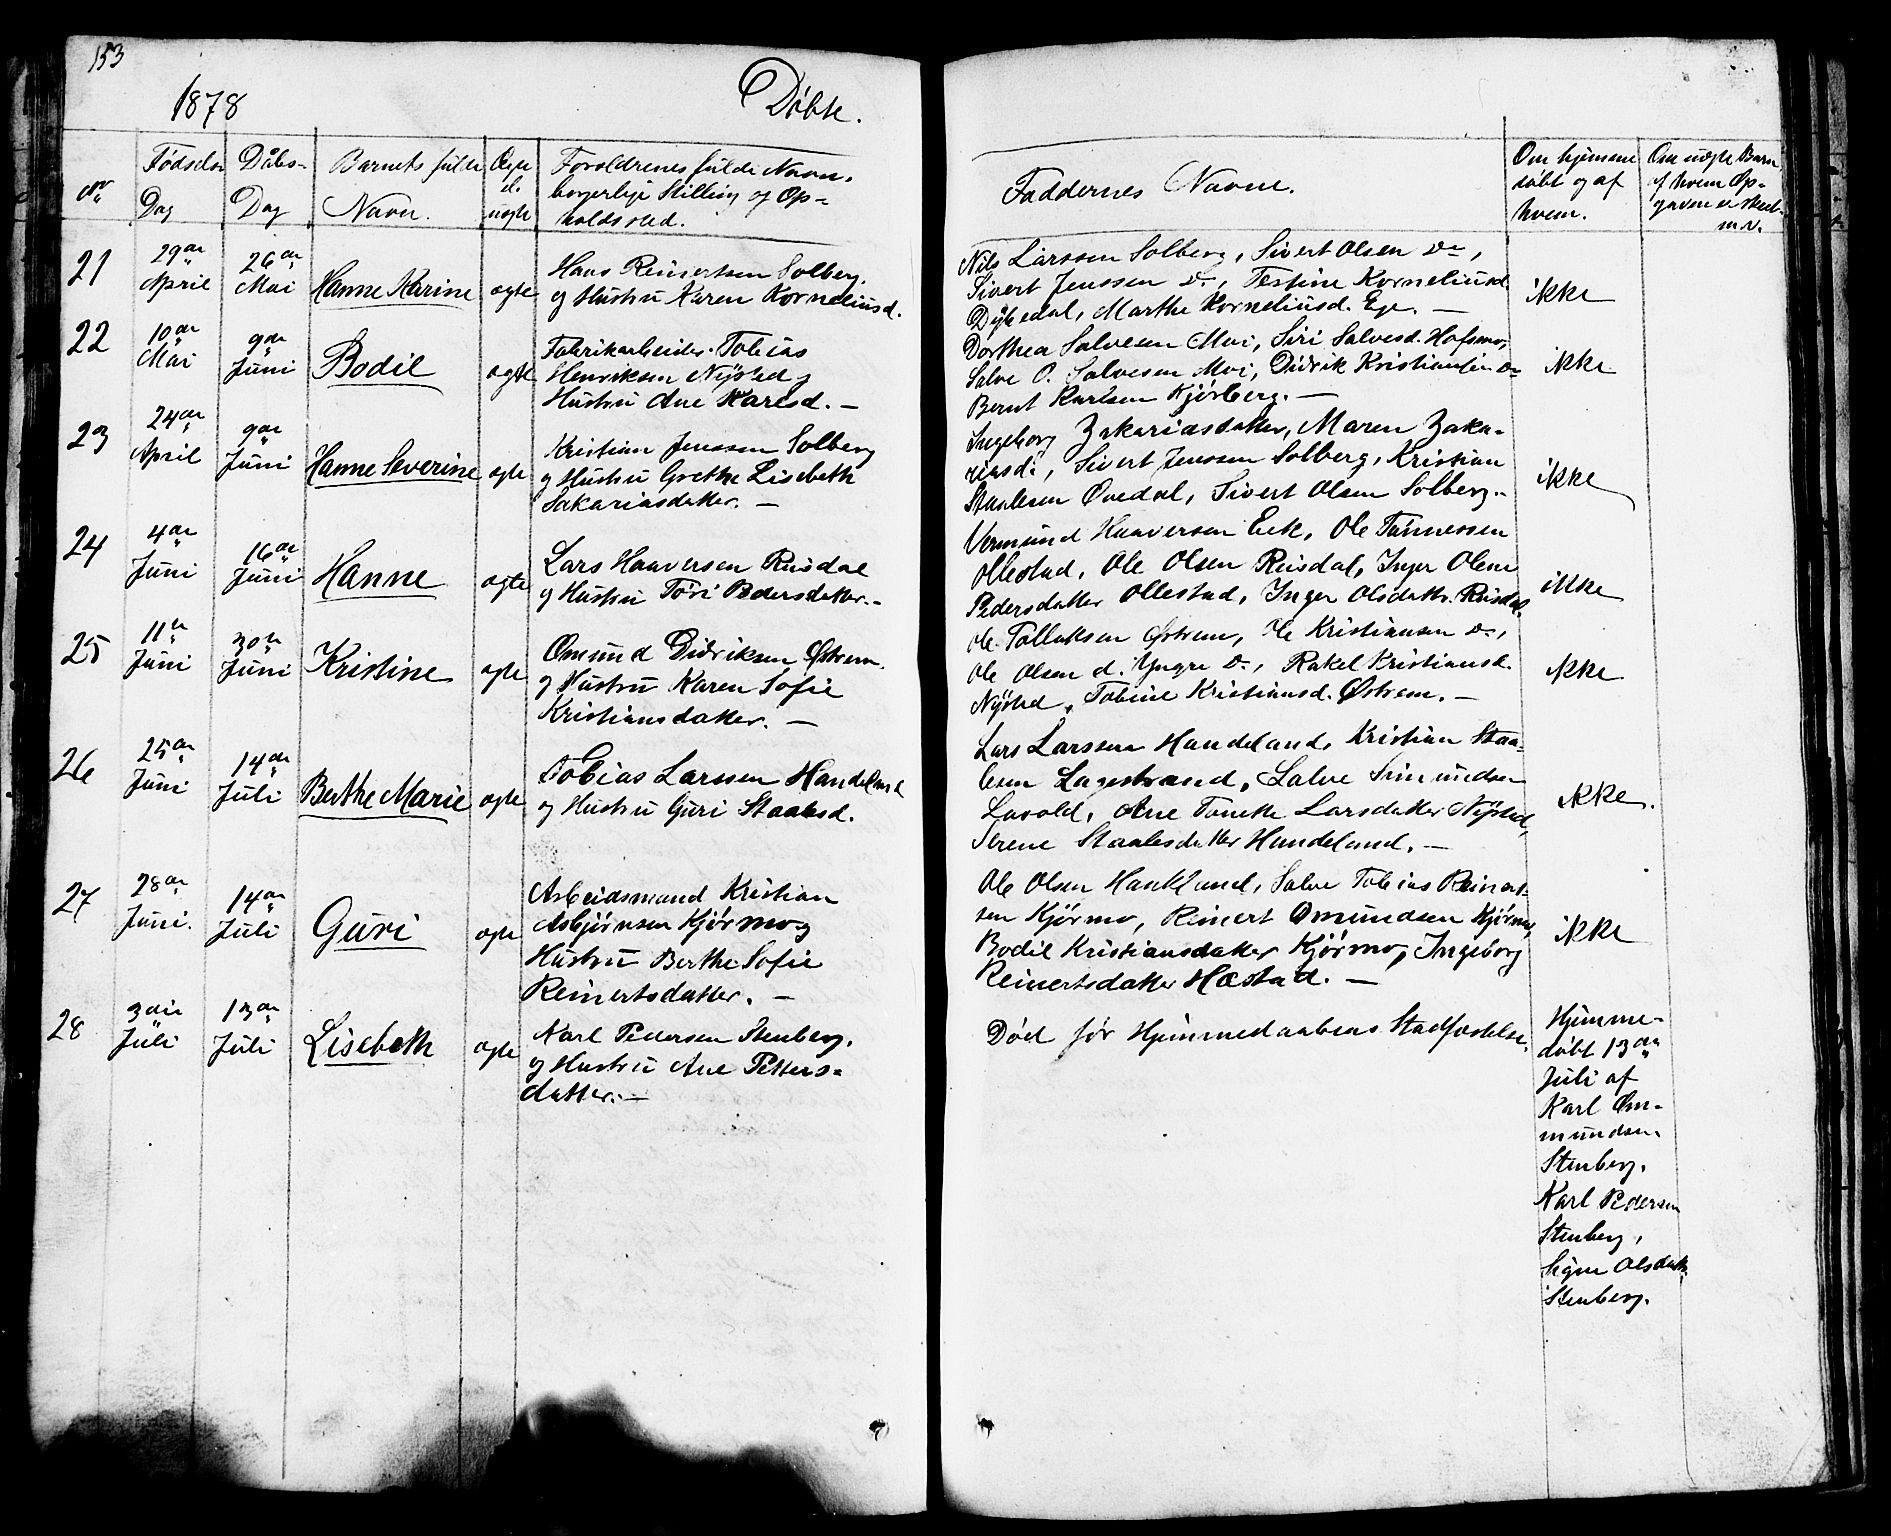 153
1878
Döbte.
Nr
Fødsels-
Dag
Dåbs-
Dag
Barnets fulde
Navn.
Ægte
el.
uægte
Foreldrenes fulde Navn,
borgerlige Stilling og Op-
holdssted.
Faddernes Navne.
Om hjemme
döbt og af
hvem.
Om uægte Barn,
af hvem Op-
gaven er skeet
m.v.
21
29de
April
26de
Mai
Hanne Karine
ægte
Hans Reinertsen Solberg
og Hustru Karen Korneliusd.
Nils Larssen Solberg, Sivert Olsen do,
Sivert Jenssen do, Testine Korneliusd.
Marthe Korneliusd. Ege. —
ikke
22
10de
Mai
9de
Juni
Bodil
ægte
Fabrikarbeider Tobias
Henriksen Nÿsted og
Hustru Ane Karlsd. —
Dorthea Salvesen Moi, Siri Salvesd. Hafsmo,
Salve O. Salvesen Moi, Didrik Kristiansen do
Bernt Karlsen Kjörberg. —
ikke
23
24de
April
9de
Juni
Hanne Severine
ægte
Kristian Jenssen Solberg
og Hustru Grethe Lisebeth
Sakariasdatter. —
Ingeborg Zakariasdatter, Maren Zaka-
riasd., Sivert Jenssen Solberg, Kristian
Staalesen Øvedal, Sivert Olsen Solberg.
ikke
24
4de
Juni
16de
Juni
Hanne
ægte
Lars Haaversen Rusdal
og Hustru Töri Pedersdatter. -
Vermund Haaversen Eek, Ole Tönnessen
Ollestad, Ole Olsen Rusdal, Inger Olene
Pedersdatter Ollestad, Inger Olsdattr. Rusdal
ikke
25
11te
Juni
30te
Juni
Kristine
ægte
Omund Didriksen Østrem
og Hustru Karen Sofie
Kristiansdatter. —
Ole Tollaksen Østrem, Ole Kristiansen do,
Ole Olsen d. Yngre do, Rakel Kristiansd.
Nÿsted, Tobine Kristiansd. Østrem. —
ikke
26
25de
Juni
14de
Juli
Berthe Marie
ægte
Tobias Larssen Handeland
og Hustru Guri Staalesd.
Lars Larssen Handeland, Kristian Staa-
lesen Lagestrand, Salve Simundsen
Lavold, Ane Tonette Larsdatter Nÿsted,
Serene Staalesdatter Handeland. —
ikke.
27
28de
Juni.
14de
Juli
Guri
ægte
Arbeidsmand Kristian
Asbjörnsen Kjörmo og
Hustru Berthe Sofie
Reinertsdatter. —
Ole Olsen Haukland, Salve Tobias Reinert-
sen Kjörmo, Reinert Omundsen Kjörmo,
Bodil Kristiansdatter Kjörmo, Ingeborg
Reinertsdatter Hæstad. —
ikke
28
3die
Juli
13de
Juli
Lisebeth
ægte
Karl Pedersen Stenberg,
og Hustru Ane Petters-
datter. —
Död för Hjemmedaabens Stadfæstelse.
Hjemme-
döbt 13de
Juli af
Karl Om-
mundsen
Stenberg.
Karl Pedersen
Stenberg,
Signe Olsdattr.
Stenberg.